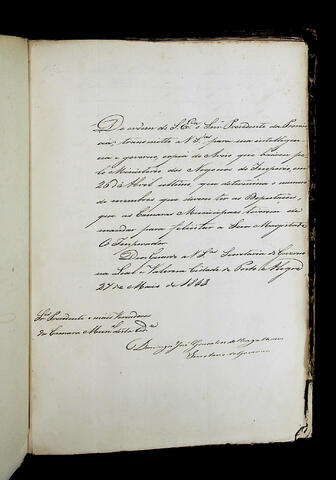 De ordem de S. Exa. o Snr. Presidente da Provin
cia, transmitto a V. Sas. para sua intelligen
cia e governo, copia do Aviso que baixou pe
lo Ministerio dos Negocios do Imperio, em
26 de Abril ultimo, que determina o numero
de membros que devem ter as Deputações,
que as Camaras Municipaes tiverem de
mandar para felicitar a Sua Magestade
O Imperador.
Deos Guarde a V. Sas. Secretaria do Governo
na Leal e Valerosa Cidade de Porto Alegre
27 de Maio de 1843
Srs. Presidente e mais Vereadores
da Camara Municipal desta Cide.
Domingos José Gonçalves de Magalhaens
Secretario do Governo